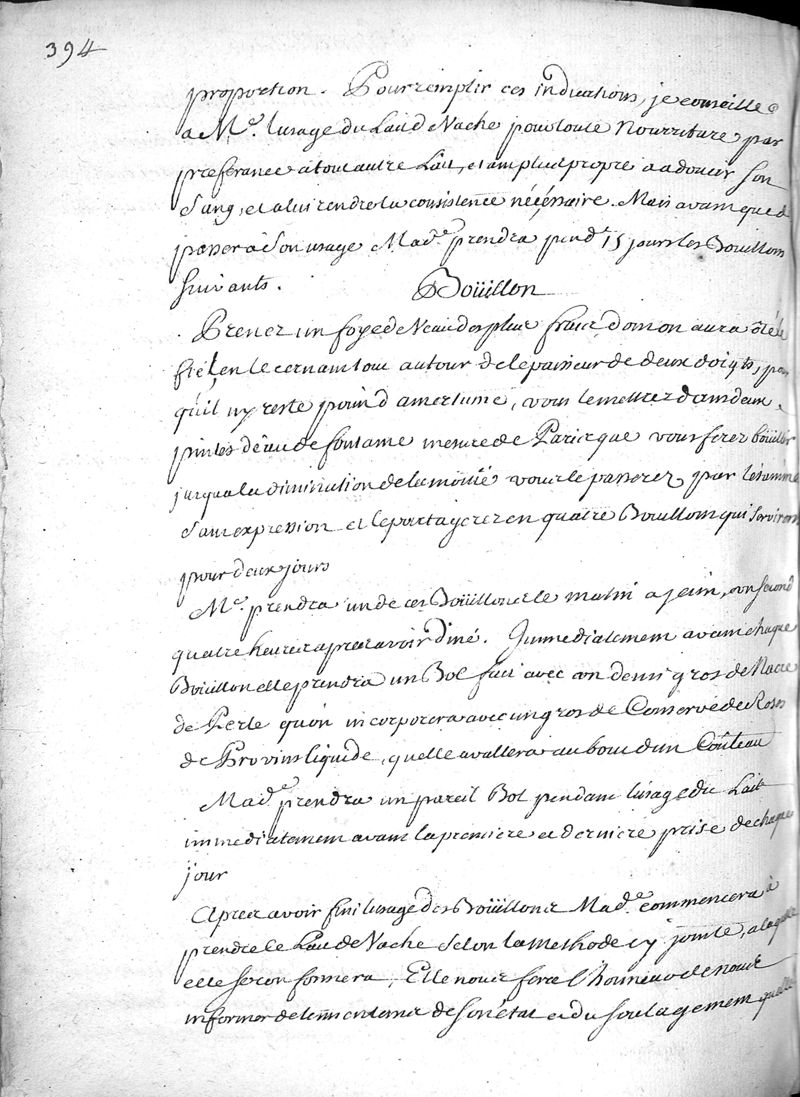 394
proportion. Pour remplir ces indications, je conseille
a Me. lusage du Lait de Vache pour toute Nourriture par
preferance a tout autre Lait, et am plus propre a adoucir son
Sang, et a lui rendre la consistence nécéssaire. Mais avant que de
passer à Son usage Made. prendra pendt. 15 jours les Bouillons
suivants.
Boüillon
Prenez un foye de Veau des plus frais dont on aura ôté le
fiel, en le cernant tout autour de lepaisseur de deux doigts, pour
qu'il ny reste point d'amertume, vous le mettrez dans deux
pintes d'eau de fontaine mesure de Paris que vous ferez boüillir
jusqua la diminution de la moitié vous le passerez par létamine
sans expression et le partagerez en quatre Bouillons qui serviront
pour deux jours
Me. prendra un de ces Boüillons le matin a jeun, un second
quatre heures apres avoir diné. Immediatement avant chaque
Boüillon elle prendra un Bol fait avec un demi gros de Nacre
de Perle quon incorporera avec un gros de Conserve de Roses
de Provins liquide, quelle avallera au bout d'un Coûteau
Made. prendra un pareil Bol pendant lusage du Lait
immediatement avant la premiere et derniere prise de chaque
jour
Apres avoir fini lusage des Boüillons Made. commencera à
prendre le Lait de Vache selon la methode cy jointe, a laquelle
elle se conformera, Elle nous fera l'honneur de nous
informer de letat de son état et du soulagement quelle